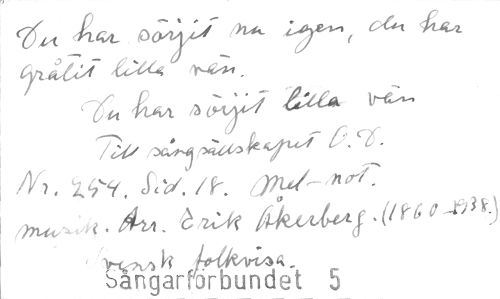 Du har sörjit nu igen, du har
gråtit lilla vän.
Du har sörjit lilla vän
Till sångsällskapet O.D.
Nr. 254. Sid. 18. Mel-not.
musik. Arr. Erik Åkerberg. (1860-1938.)
Svensk folkvisa.
Sångarförbundet 5